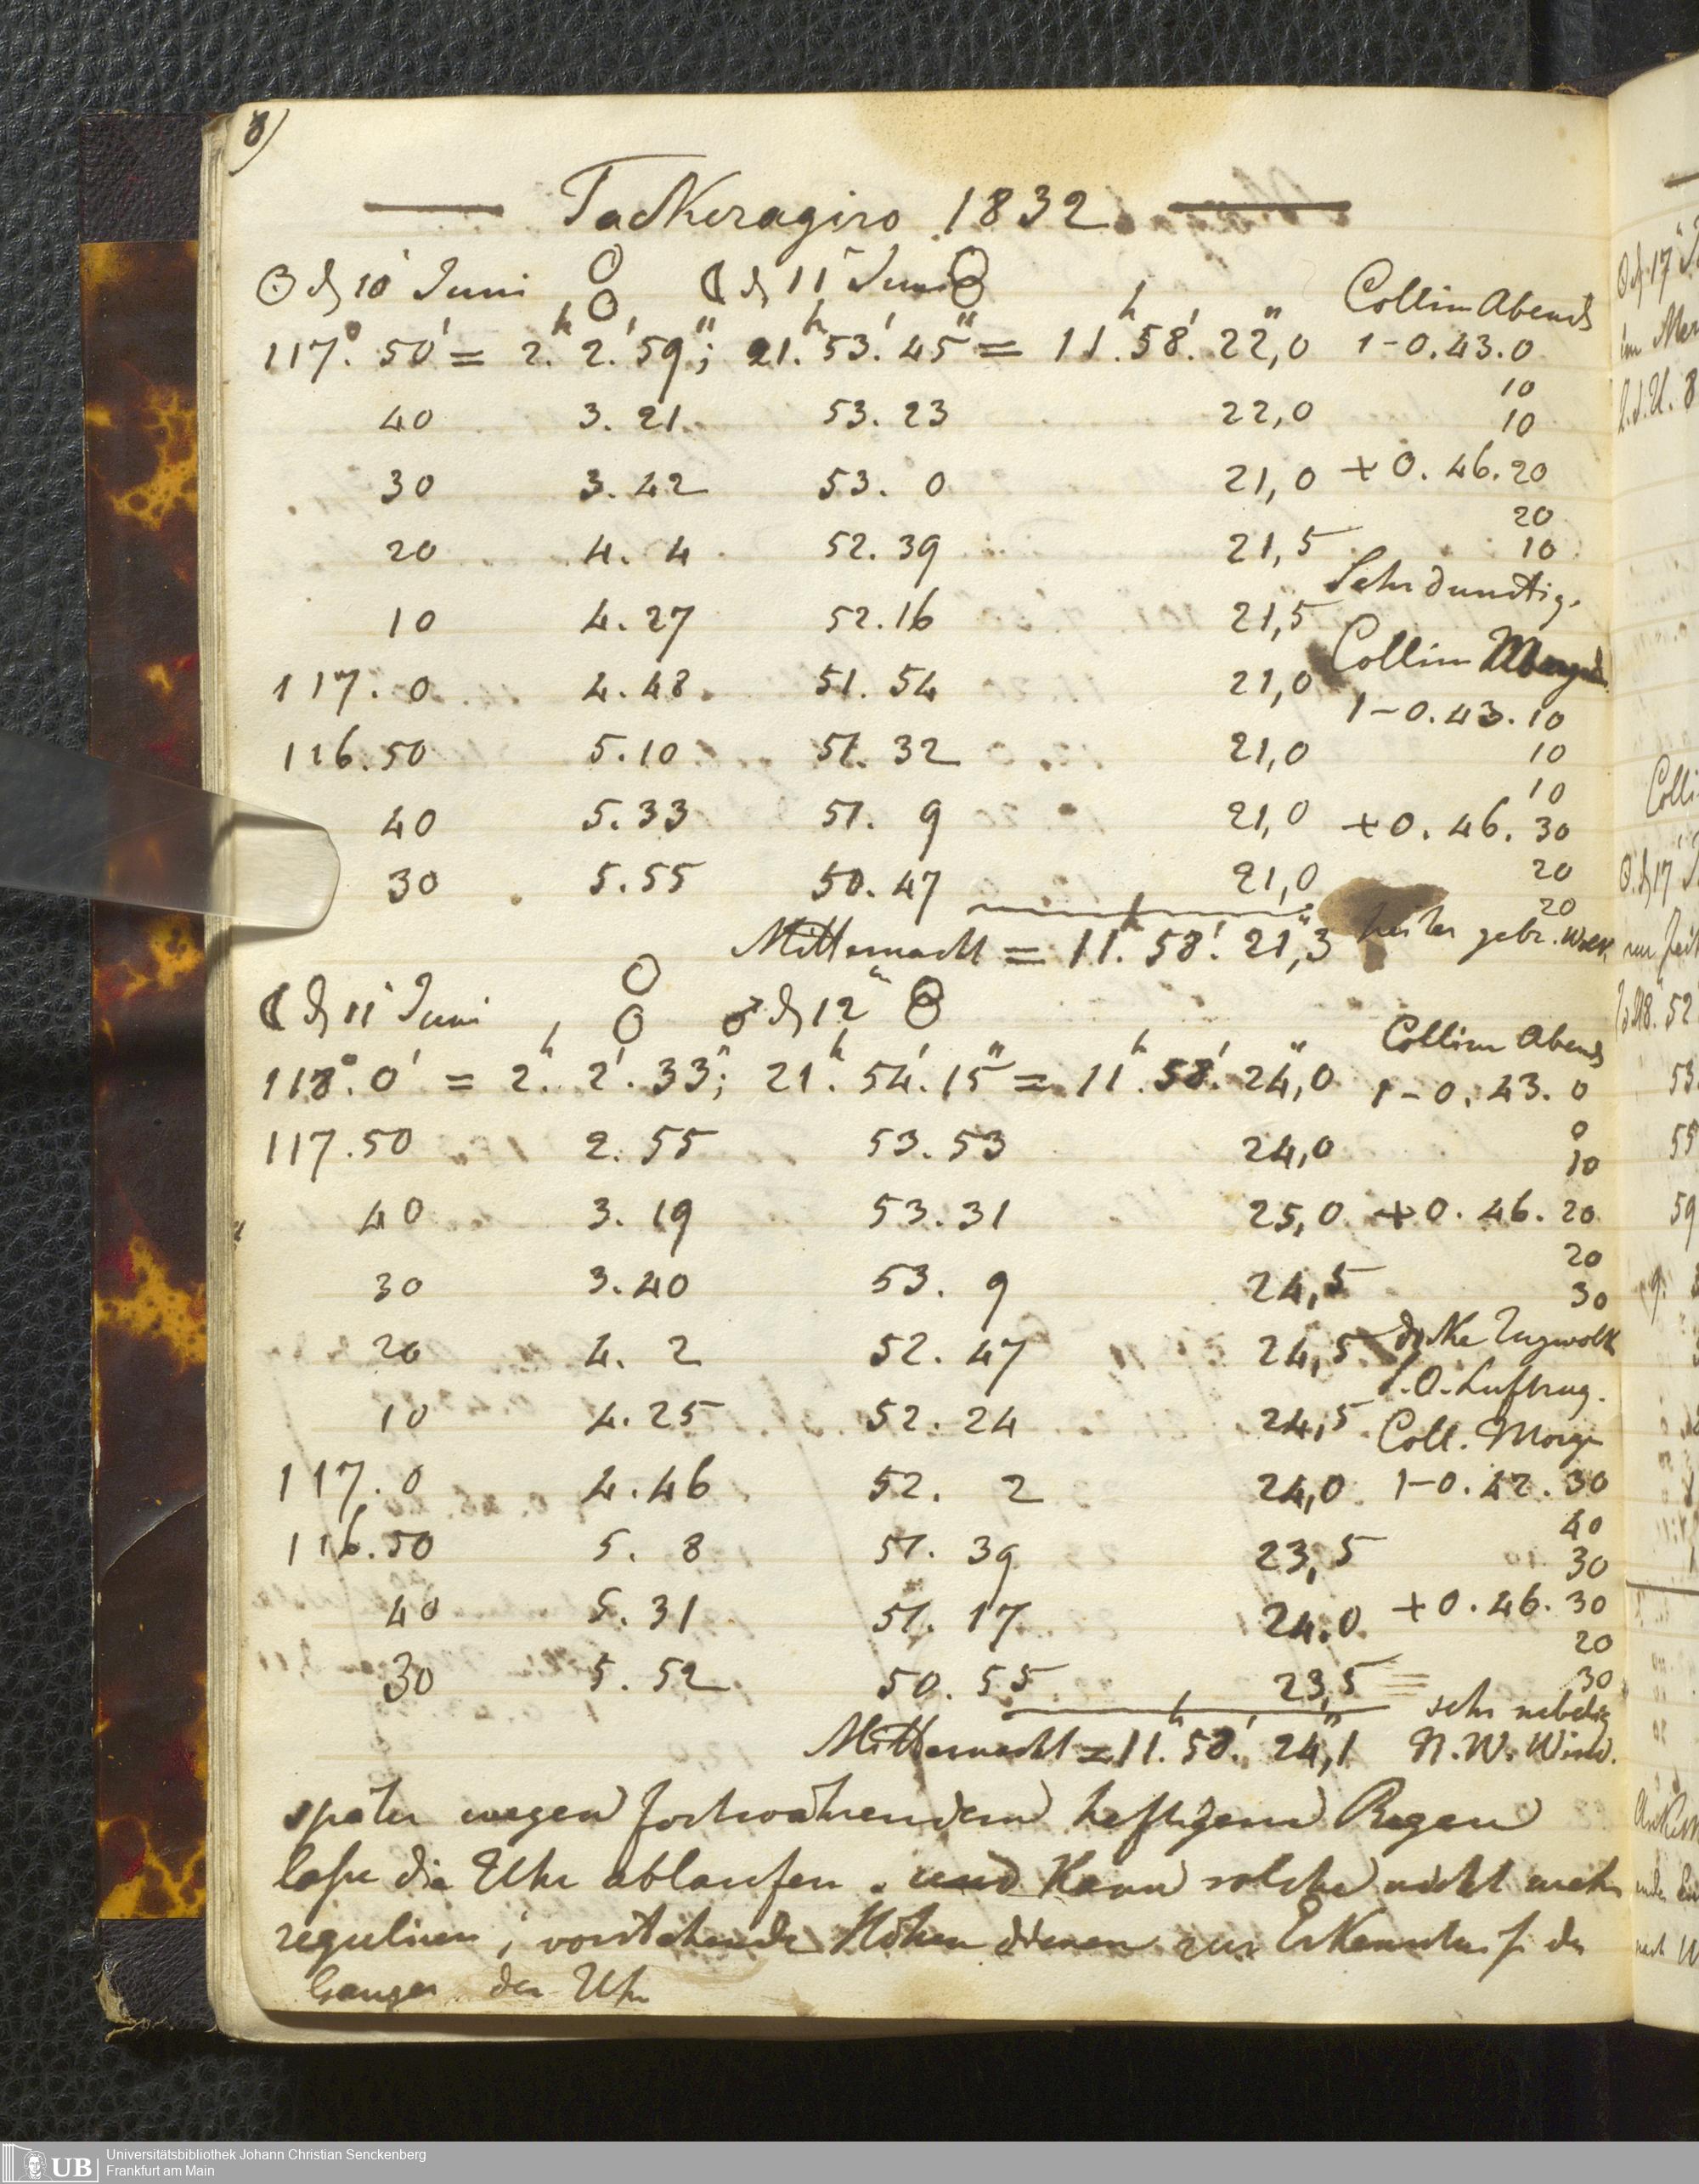 8)
Tackeragiro 1832
☉ d 10 Juni ☾ d 11 Juni Collim Abends
117°. 50' = 2.h 2.' 59"; 21.h 53.' 45" = 11.h 58.' 22,"0 1-0.43.0
10
40 3. 21 53. 23 22,0 10
30 3. 42 53. 0 21,0 +0. 46. 20
20
20 4. 4 52. 39 21,5 10
Sehr dunstig.
10 4. 27 52. 16 21,5
Collim Morgends
117. 0 4. 48 51. 54 21,0
1-0.43.10
116. 50 5. 10 51. 32 21,0 10
10
40 5. 33 51. 9 21,0 +0. 46. 30
30 5. 55 50. 47 21,0 20
20
Mitternacht = 11.h 58.' 21,"3 heiter gebr. Wolk
☾ d 11 Juni ♂ d 12
Collim Abends
118°. 0' = 2.h 2.' 33"; 21.h 54.' 15" = 11.h 58.' 24,"0 1-0. 43. 0
117. 50 2. 55 53. 53 24,0 0
10
40 3. 19 53. 31 25,0 +0. 46. 20
20
30 3. 40 53. 9 24,5 30
20 4. 2 52. 47 24,5 dicke Zugwolk
S.O. Luftzug.
10 4. 25 52. 24 24,5 Coll. Morge
117. 0 4. 46 52. 2 24,0 1-0. 42. 30
40
116. 50 5. 8 51. 39 23,5 30
40 5. 31 51. 17 24.0 +0. 46. 30
20
30 5. 52 50. 55 23,5 30
sehr nebelig
Mitternacht = 11.h 58.' 24,"1 N.W. Wind.
später wegen fortwährendem heftigem Regen
lasse die Uhr ablaufen. und Kann solche nicht mehr
reguliren; vorstehende Höhen dienen zur Erkenntniss des
Ganges der Uhr
UB
Universitätsbibliothek Johann Christian Senckenberg
Frankfurt am Main